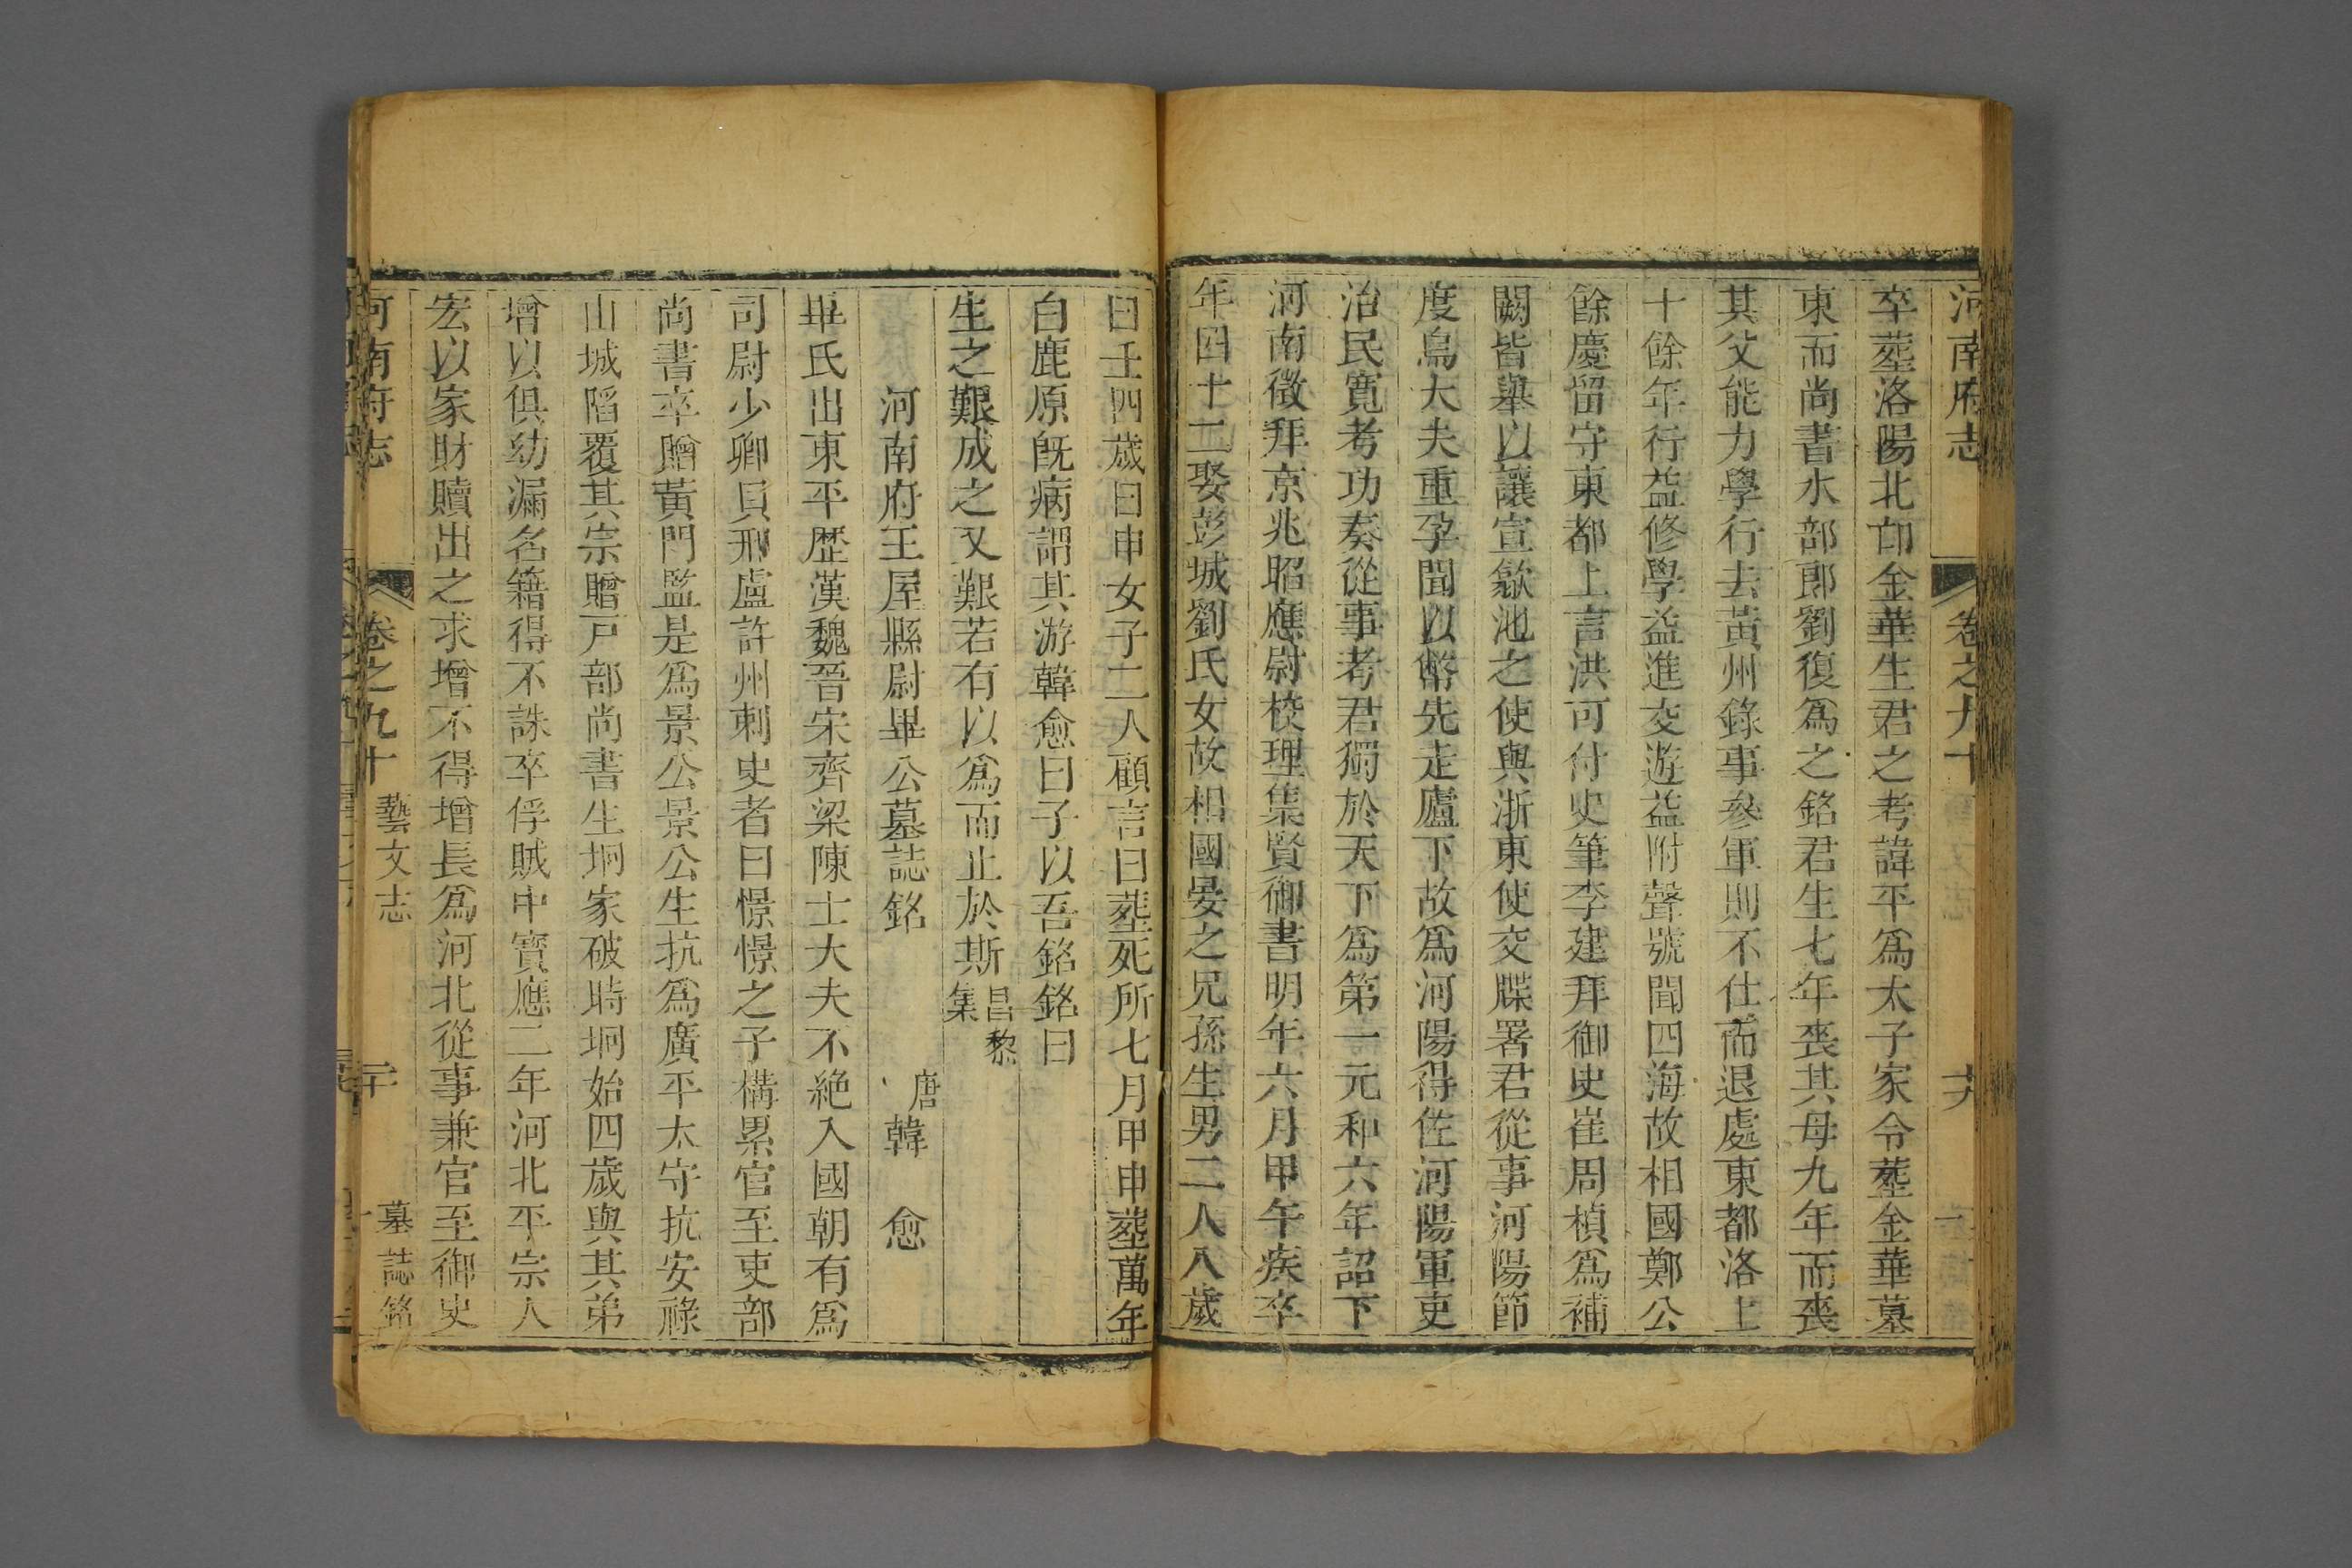 河南府志 卷之九十 十九
卒葬洛陽北邙金華生君之考諱平爲太子家令葬金華墓
東而尚書水部郎劉復爲之銘君生七年喪其母九年而喪
其父能力學行去黃州錄事參軍則不仕而退處東都洛上
十餘年行益修學益進交遊益附聲號聞四海故相國鄭公
餘慶留守東都上言洪可付史筆李建拜御史崔周楨爲補
闕皆舉以讓宣歙池之使與浙東使交牒署君從事河陽節
度烏大夫重孕聞以幣先走廬下故爲河陽得佐河陽軍吏
治民寬考功奏從事考君獨於天下爲第一元和六年詔下
河南徵拜京兆昭應尉校理集賢御書明年六月甲午疾卒
年四十二娶彭城劉氏女故相國晏之兄孫生男二人八歲
曰壬四歲曰申女子二人顧言曰葬死所七月甲申葬萬年
白鹿原旣病謂其游韓愈曰子以吾銘銘曰
生之艱成之又艱若有以爲而止於斯 昌黎集
河南府王屋縣尉畢公墓誌銘 唐 韓愈
畢氏出東平歷漢魏晉宋齊梁陳士大夫不絶入國朝有爲
司尉少卿貝邢盧許州刺史者曰憬憬之子構累官至吏部
尚書卒贈黃門監是爲景公景公生抗爲廣平太守抗安祿
山城陷覆其宗贈戸部尚書生坰家破時坰始四歲與其弟
增以俱幼漏名籍得不誅卒俘賊中寶應二年河北平宗人
宏以家財贖出之求增不得增長爲河北從事兼官至御史
河南府志 卷之九十 藝文志 二十 墓誌銘